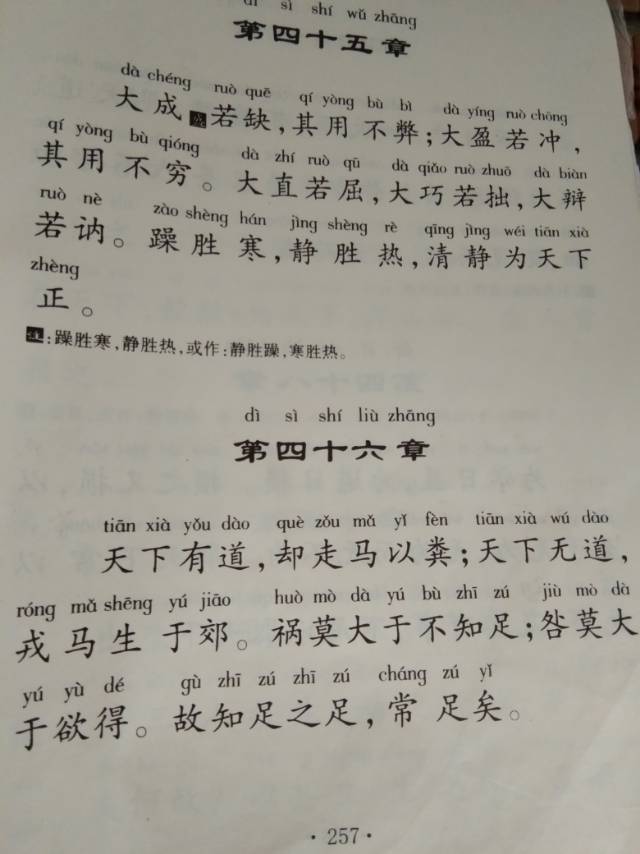 dì sì shí wǔ zhāng
第四十五章
dà chéng ruò quē qí yòng bù bì dà yíng ruò chōng
大成若缺,其用不弊;大盈若冲,
qí yòng bù qióng dà zhí ruò qū dà qiǎo ruò zhuō dà biàn
其用不穷。大直若屈,大巧若拙,大辩
ruò nè zào shèng hán jìng shèng rè qīng jìng wéi tiān xià
若讷。躁胜寒,静胜热,清静为天下
zhèng
正。
:躁胜寒,静胜热,或作:静胜躁,寒胜热。
dì sì shí liù zhāng
第四十六章
tiān xià yǒu dào què zǒu mǎ yǐ fèn tiān xià wú dào
天下有道,却走马以粪;天下无道,
róng mǎ shēng yú jiāo huò mò dà yú bù zhī zú jiù mò dà
戎马生于郊。祸莫大于不知足;咎莫大
yú yù dé gù zhī zú zhī zú cháng zú yǐ
于欲得。故知足之足,常足矣。
·257·